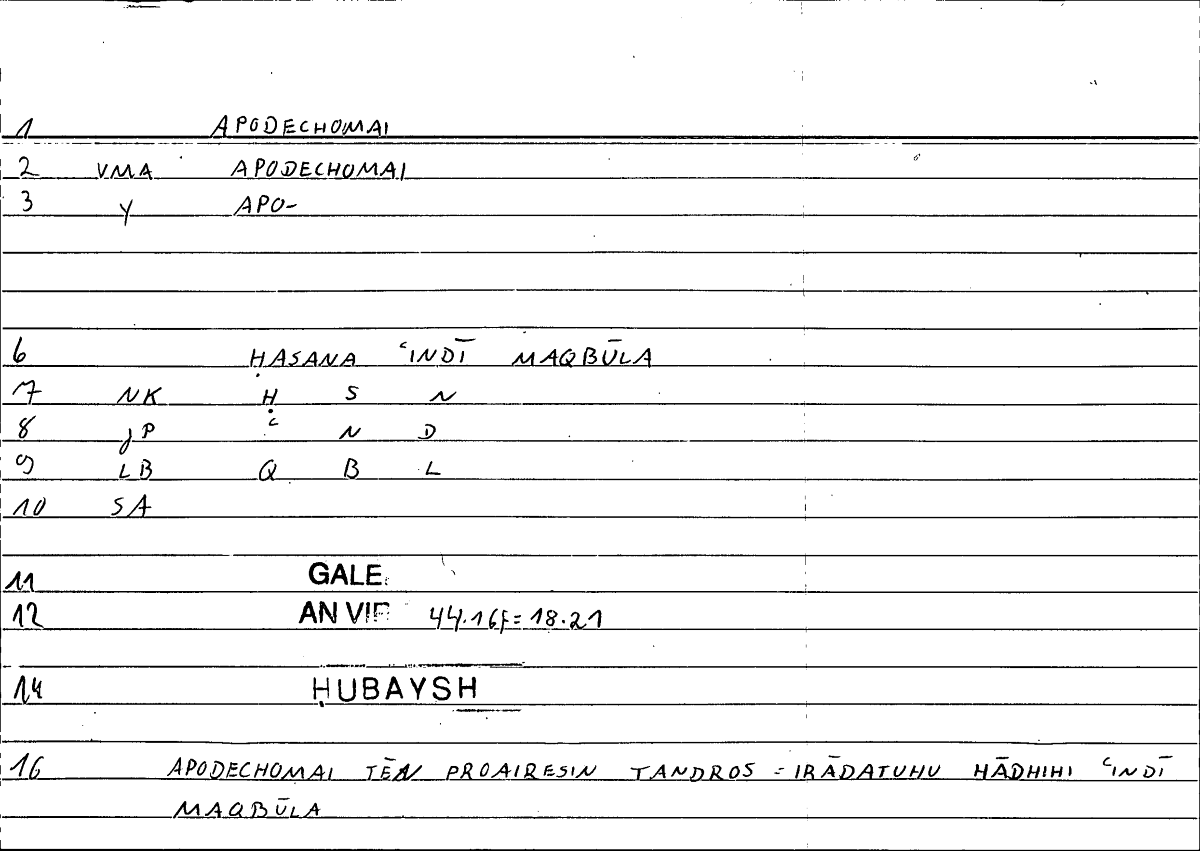 1 APODECHOMAI
2 VMA APODECHOMAI
3 Y APO-
6 ḤASANA ʿINDĪ MAQBŪLA
7 NK Ḥ S N
8 JP ʿ N D
9 LB Q B L
10 SA
11 GALE
12 AN VIR 44.16f=18.21
14 ḤUBAYSH
16 APODECHOMAI TĒN PROAIRESIN TANDROS = IRĀDATUHU HĀDHIHI ʿINDĪ
MAQBŪLA